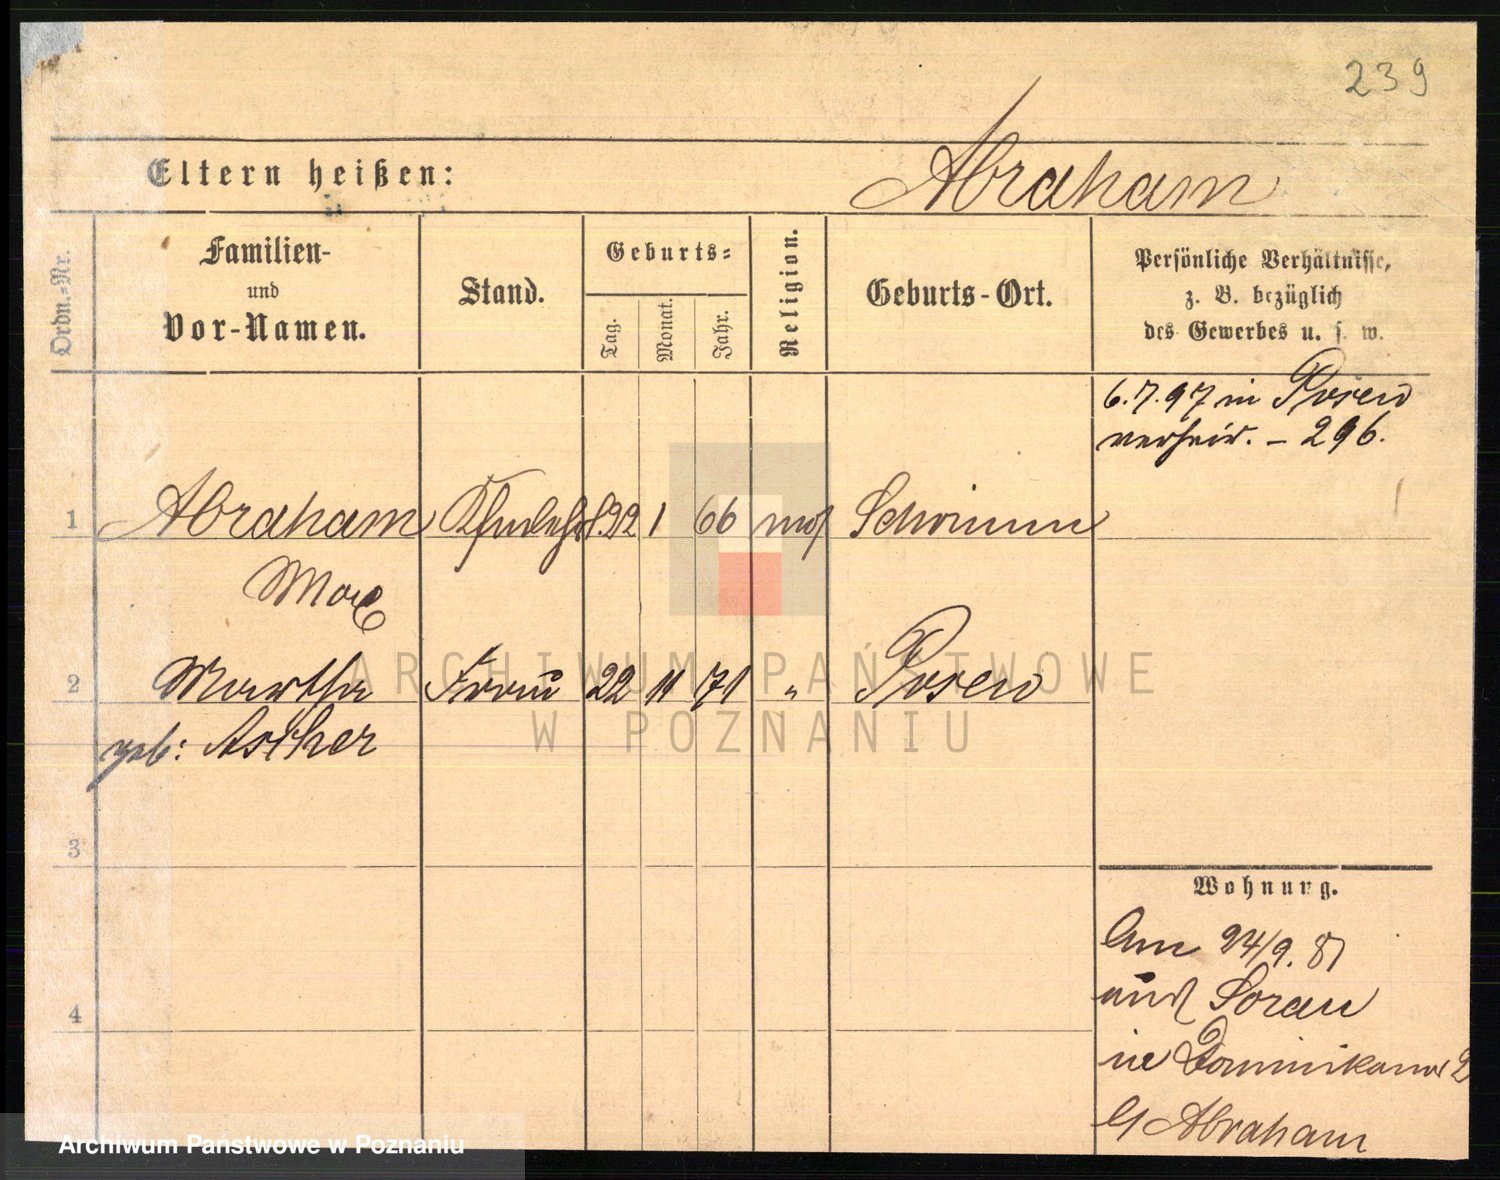 239
Eltern heißen:
Abraham
Ordn.-Nr.
Familien-
und
Vor-Namen.
Stand.
Geburts-
Tag.
Monat.
Jahr.
Religion.
Geburts-Ort.
Persönliche Verhältnisse,
z. B. bezüglich
des Gewerbes u. s. w.
6.7.97 in Posen
verheir. – 296.
1 Abraham 1 66 mos Schrimm
Max
2 Martha Frau 22 11 71 " Posen
geb: Ascher
3
Wohnung.
Am 24/9. 81
aus Sorau
4
in Dominikaner 2
b/ Abraham
ARCHIWUM PAŃSTWOWE
W POZNANIU
Archiwum Państwowe w Poznaniu